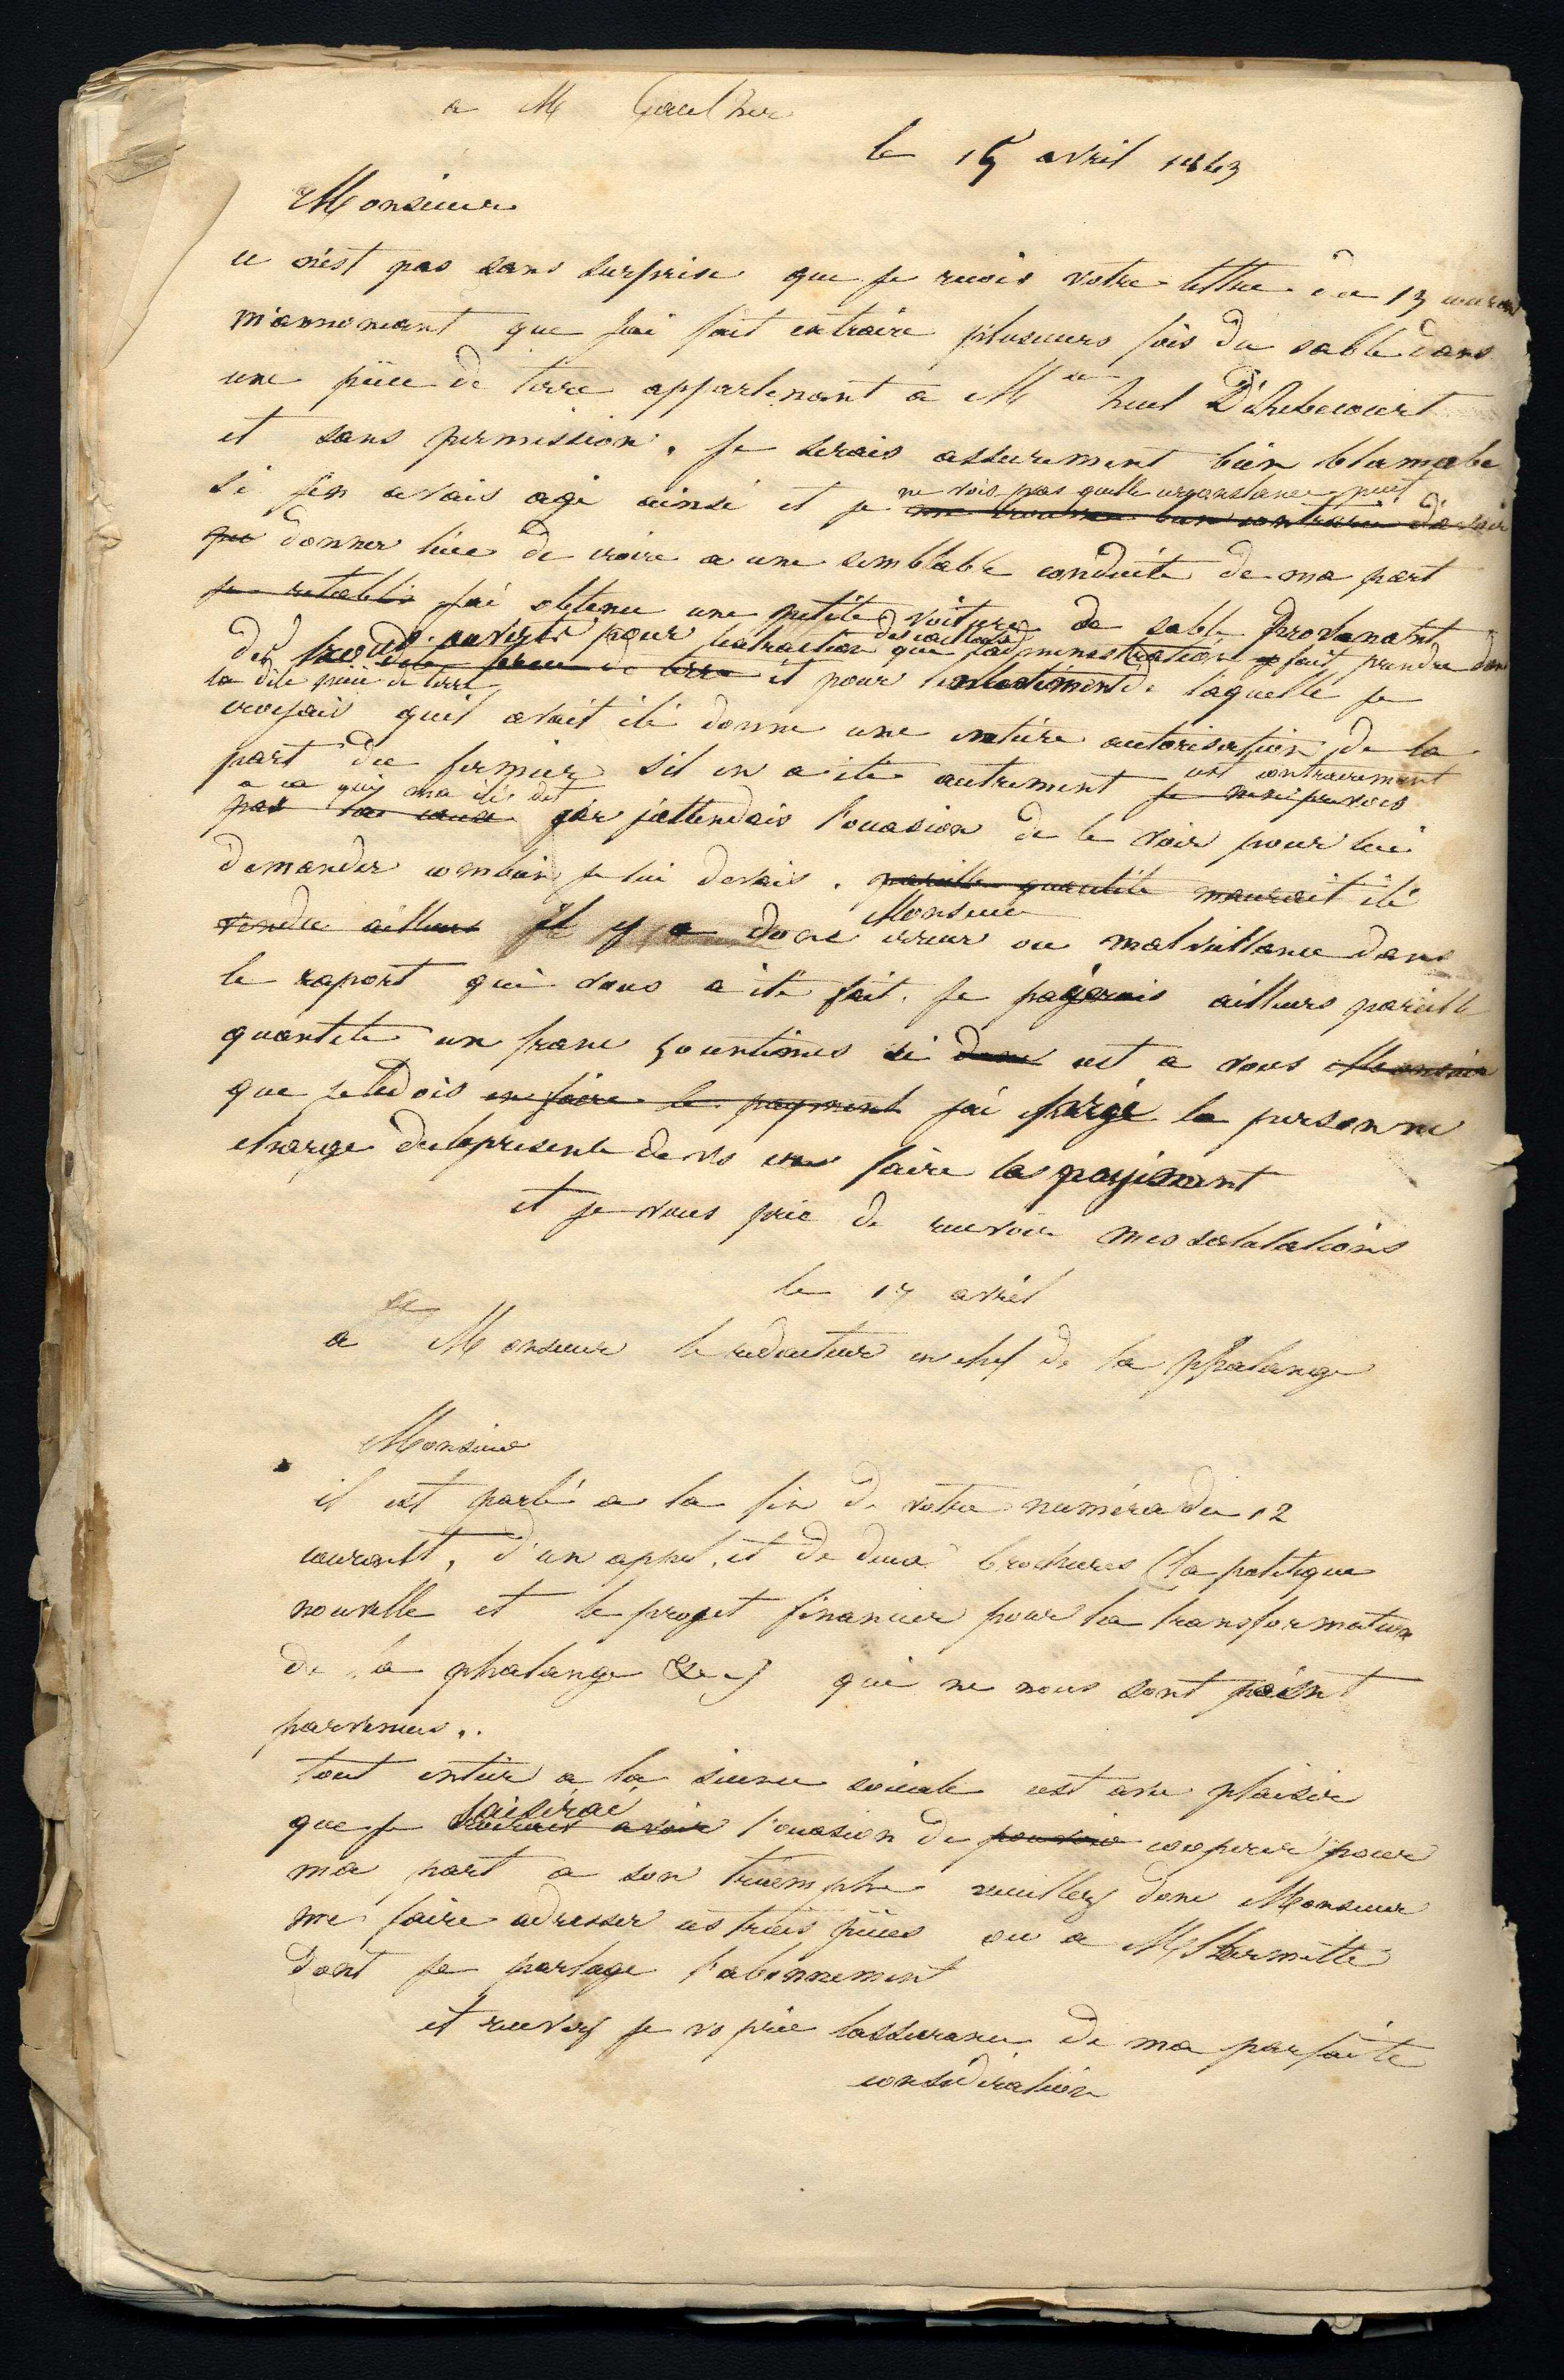 a M
le 15 avril 1843
Monsieur
ce n'est pas sans surprise que je recois votre lettre du 13 courant
m'annoncant que jai fait extraire plusieurs fois du sable dans
une piece de terre appartenant a M
et sans permission. je serais assurement bien blamable
ne vois pas quelle circonstance peut
si jen avais agi ainsi et je
donner lieu de croire a une semblable conduite de ma part
je retablis jai obtenu une petite voiture de sable provenant
des cailloux
des trous ouverts pour lextraction que ladministration fait prendre dans
la dite piece de terre et pour laquelle je
croyais quil avait été donne une entière autorisation de la
part du fermier sil en a été autrement cest contrairement
a ce quil ma été dit
car jattendais l'occasion de le voir pour lui
demander combien je lui devais. pareille quantité mauroit été
Monsieur
vendu ailleurs il y a donc erreur ou malveillance dans
le raport qui vous a été fait. je payerais ailleurs pareille
quantité un franc 50 centimes si donc cest a vous Monsieur
que je le dois en faire le payment jai chargé la personne
charge de la presente de vs faire le payement
et je vous prie de recevoir mes salutations
le 17 avril
a Monsieur le redacteur en chef de la phalange
Monsieur
il est parlé a la fin de votre numéro du 12
courant, d'un appel, et de deux brochures (la politique
nouvelle et le projet financier pour la transformation
de la phalange &c) qui ne nous sont point
parvenus..
tout entier a la science sociale cest avec plaisir
saisirai
que je voudrais avoir l'occasion de pouvoir cooperer pour
ma part a son triomphe veuillez donc Monsieur
me faire adresser ces trois pièces ou a M Lhermitte
dont je partage l'abonnement
et recevez je vs prie lassurance de ma parfaite
consideration